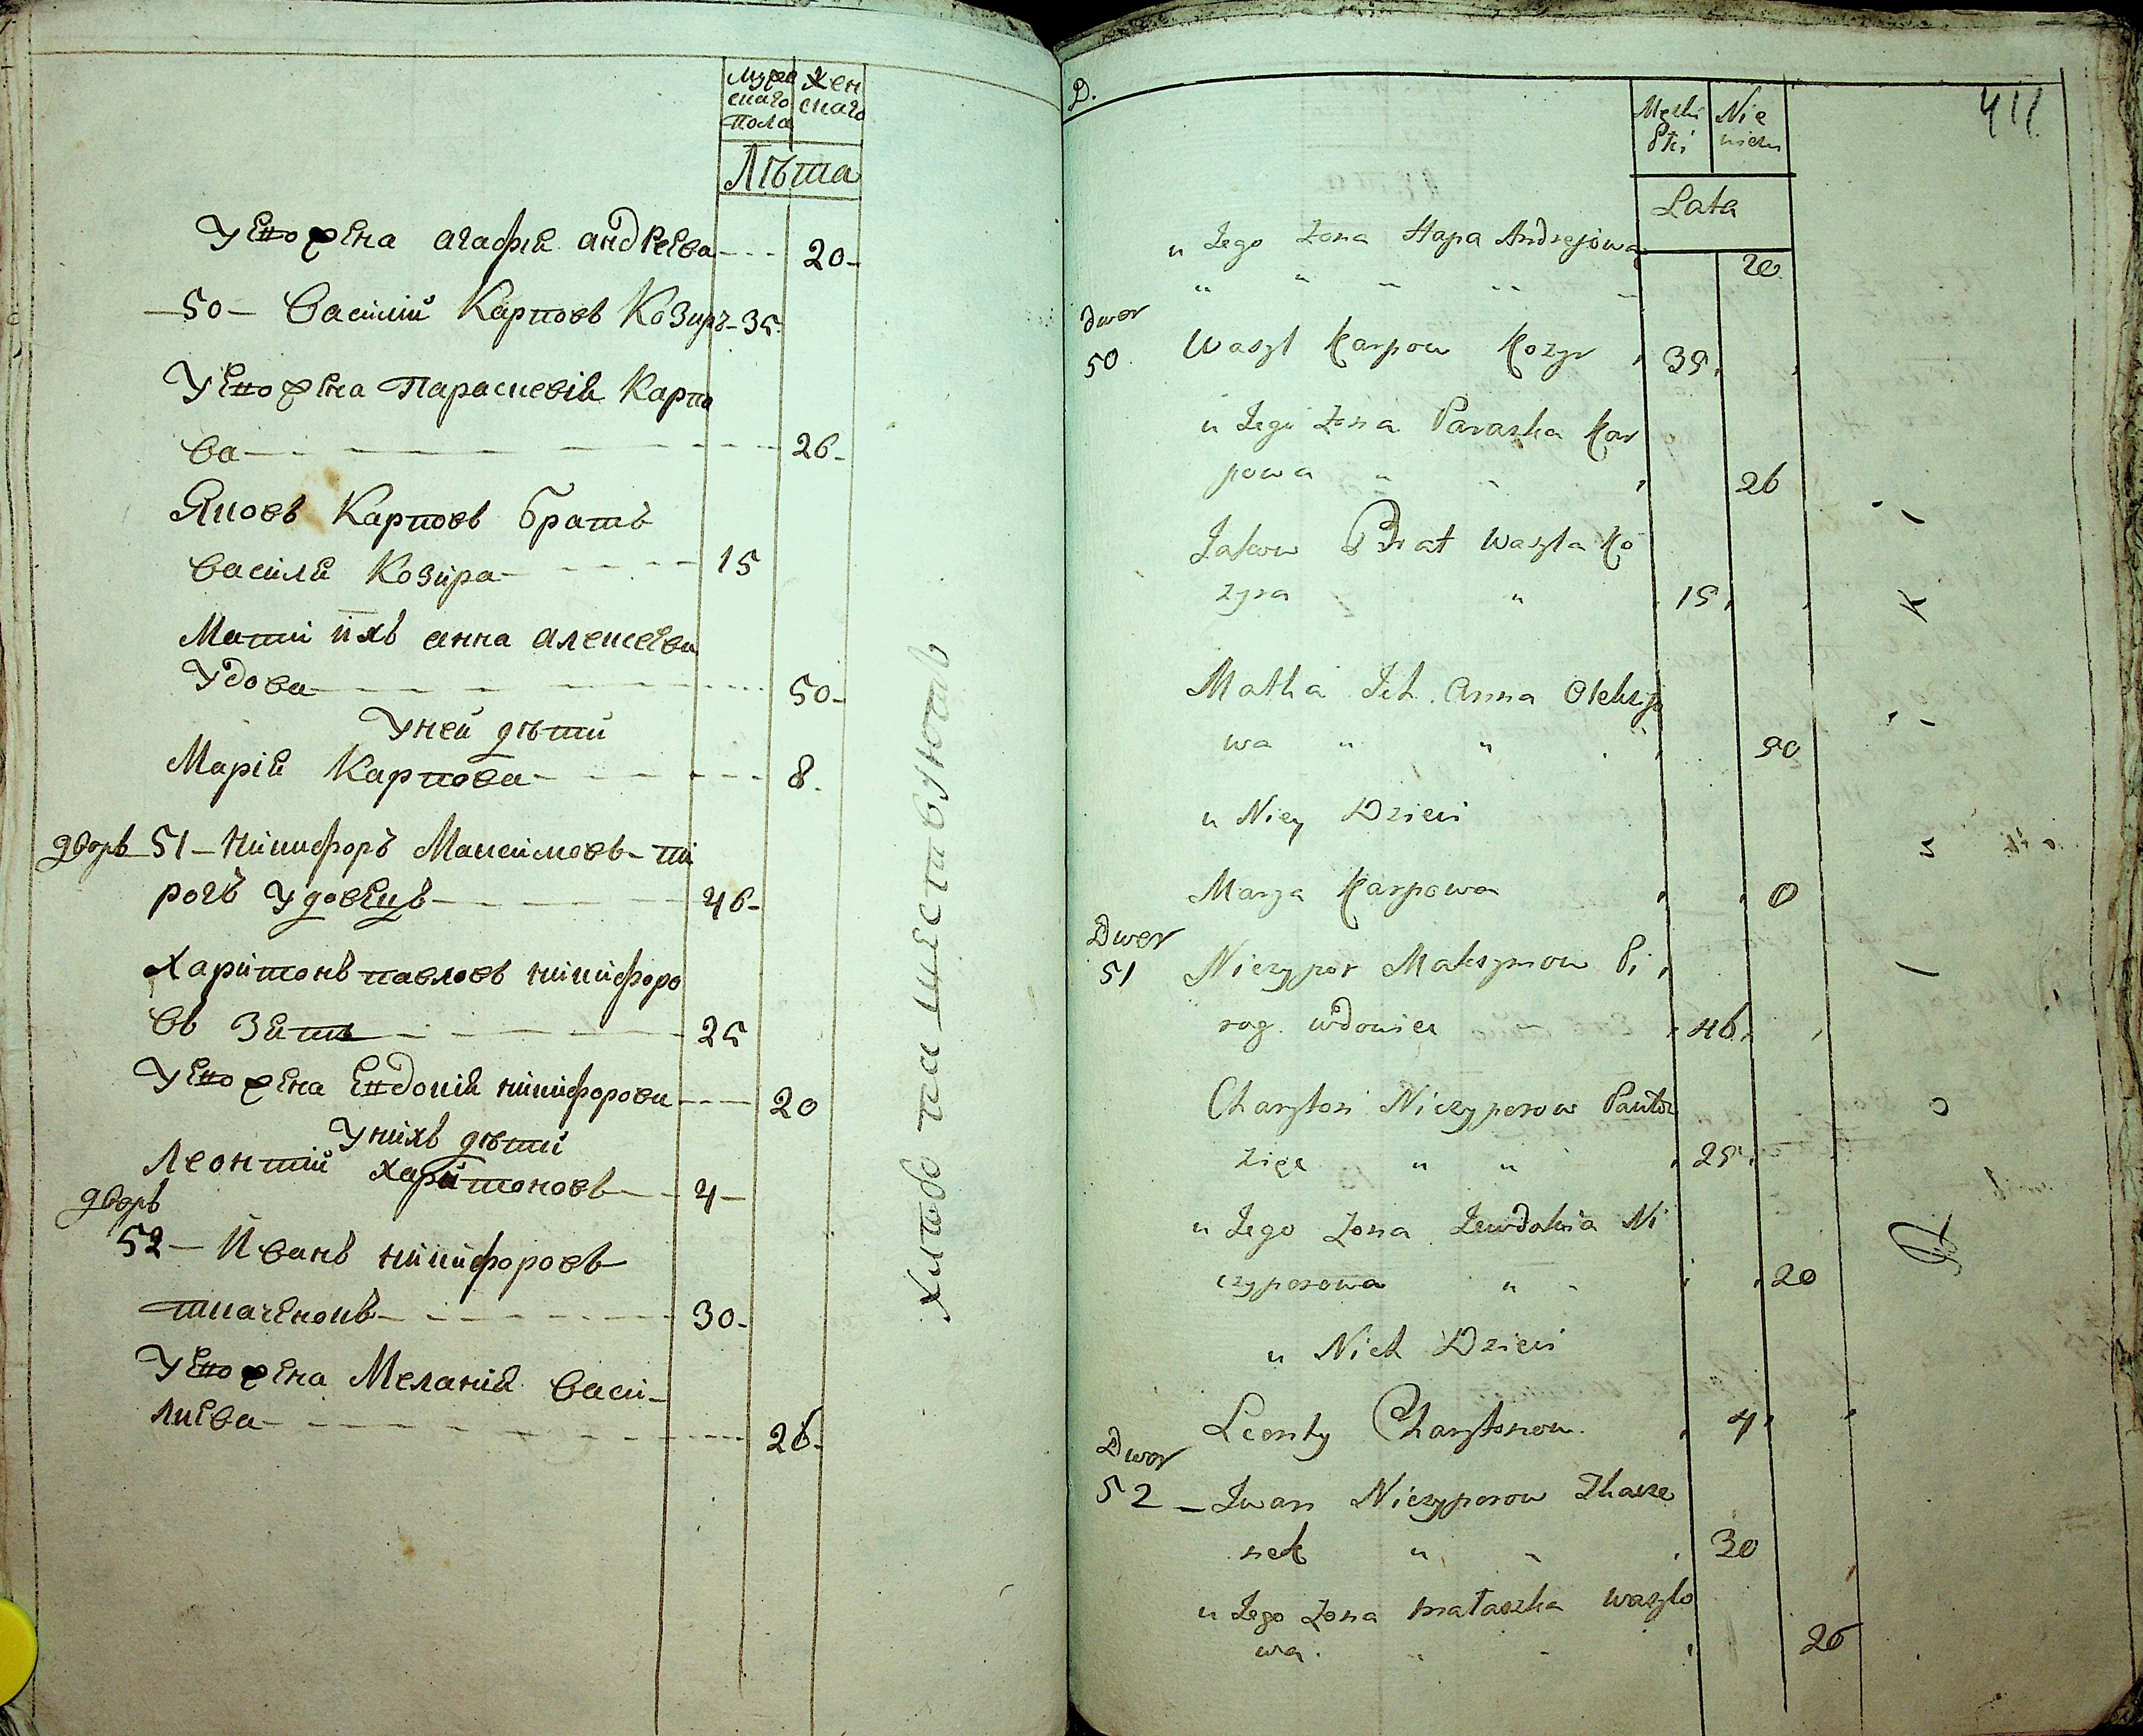 муже
скаго
пола
жен
скаго
Лѣта
У Его жена агафіѧ андреева 20
50 Василій Карповъ Козиръ 35
У Его жена Параскевіѧ Карпо
ва 26
Яковъ Карповъ братъ
Василѧ Козира 15
Мати ихъ анна алексеева
Удова 50
У ней дѣти
Маріѧ Карпова 8
дворъ 51 Никифоръ Максимовъ пи
рогъ удовецъ 46
Харитонъ павловъ никифоро
въ Зять 25
У Его жена Евдокіѧ никифорова 20
У нихъ дѣти
Леонтій Харитоновъ 4
дворъ
52 Иванъ никифоровъ
ткаченокъ 30
У Его жена Меланіѧ Васи
лиева 26
D.
Męski
Płci
Nie
wieści
Lata
411
u Jego Zona Hapa Andrejowa
20
Dwor
50 Wasyl Karpow Kozyr 35
u Jego Zona Paraska Kar
powa 26
Jakow Brat Wasyla Ko
zyra 15
Matka Ich Anna Oleksijo
wa 50
u Niey Dzieci
Marya Karpowa 0
Dwor
51 Niczypor Maksymow Pi
rog wdowiec 46
Charyton Niczyporow Pawłow
zięć 25
u Jego Zona Jewdokia Ni
czyporowa 20
u Nich Dzieci
Leonty Charytonow 4
Dwor
52 Iwan Niczyporow Tkacze
nok 30
u Jego Zona Małaszka Wasylo
wa 26